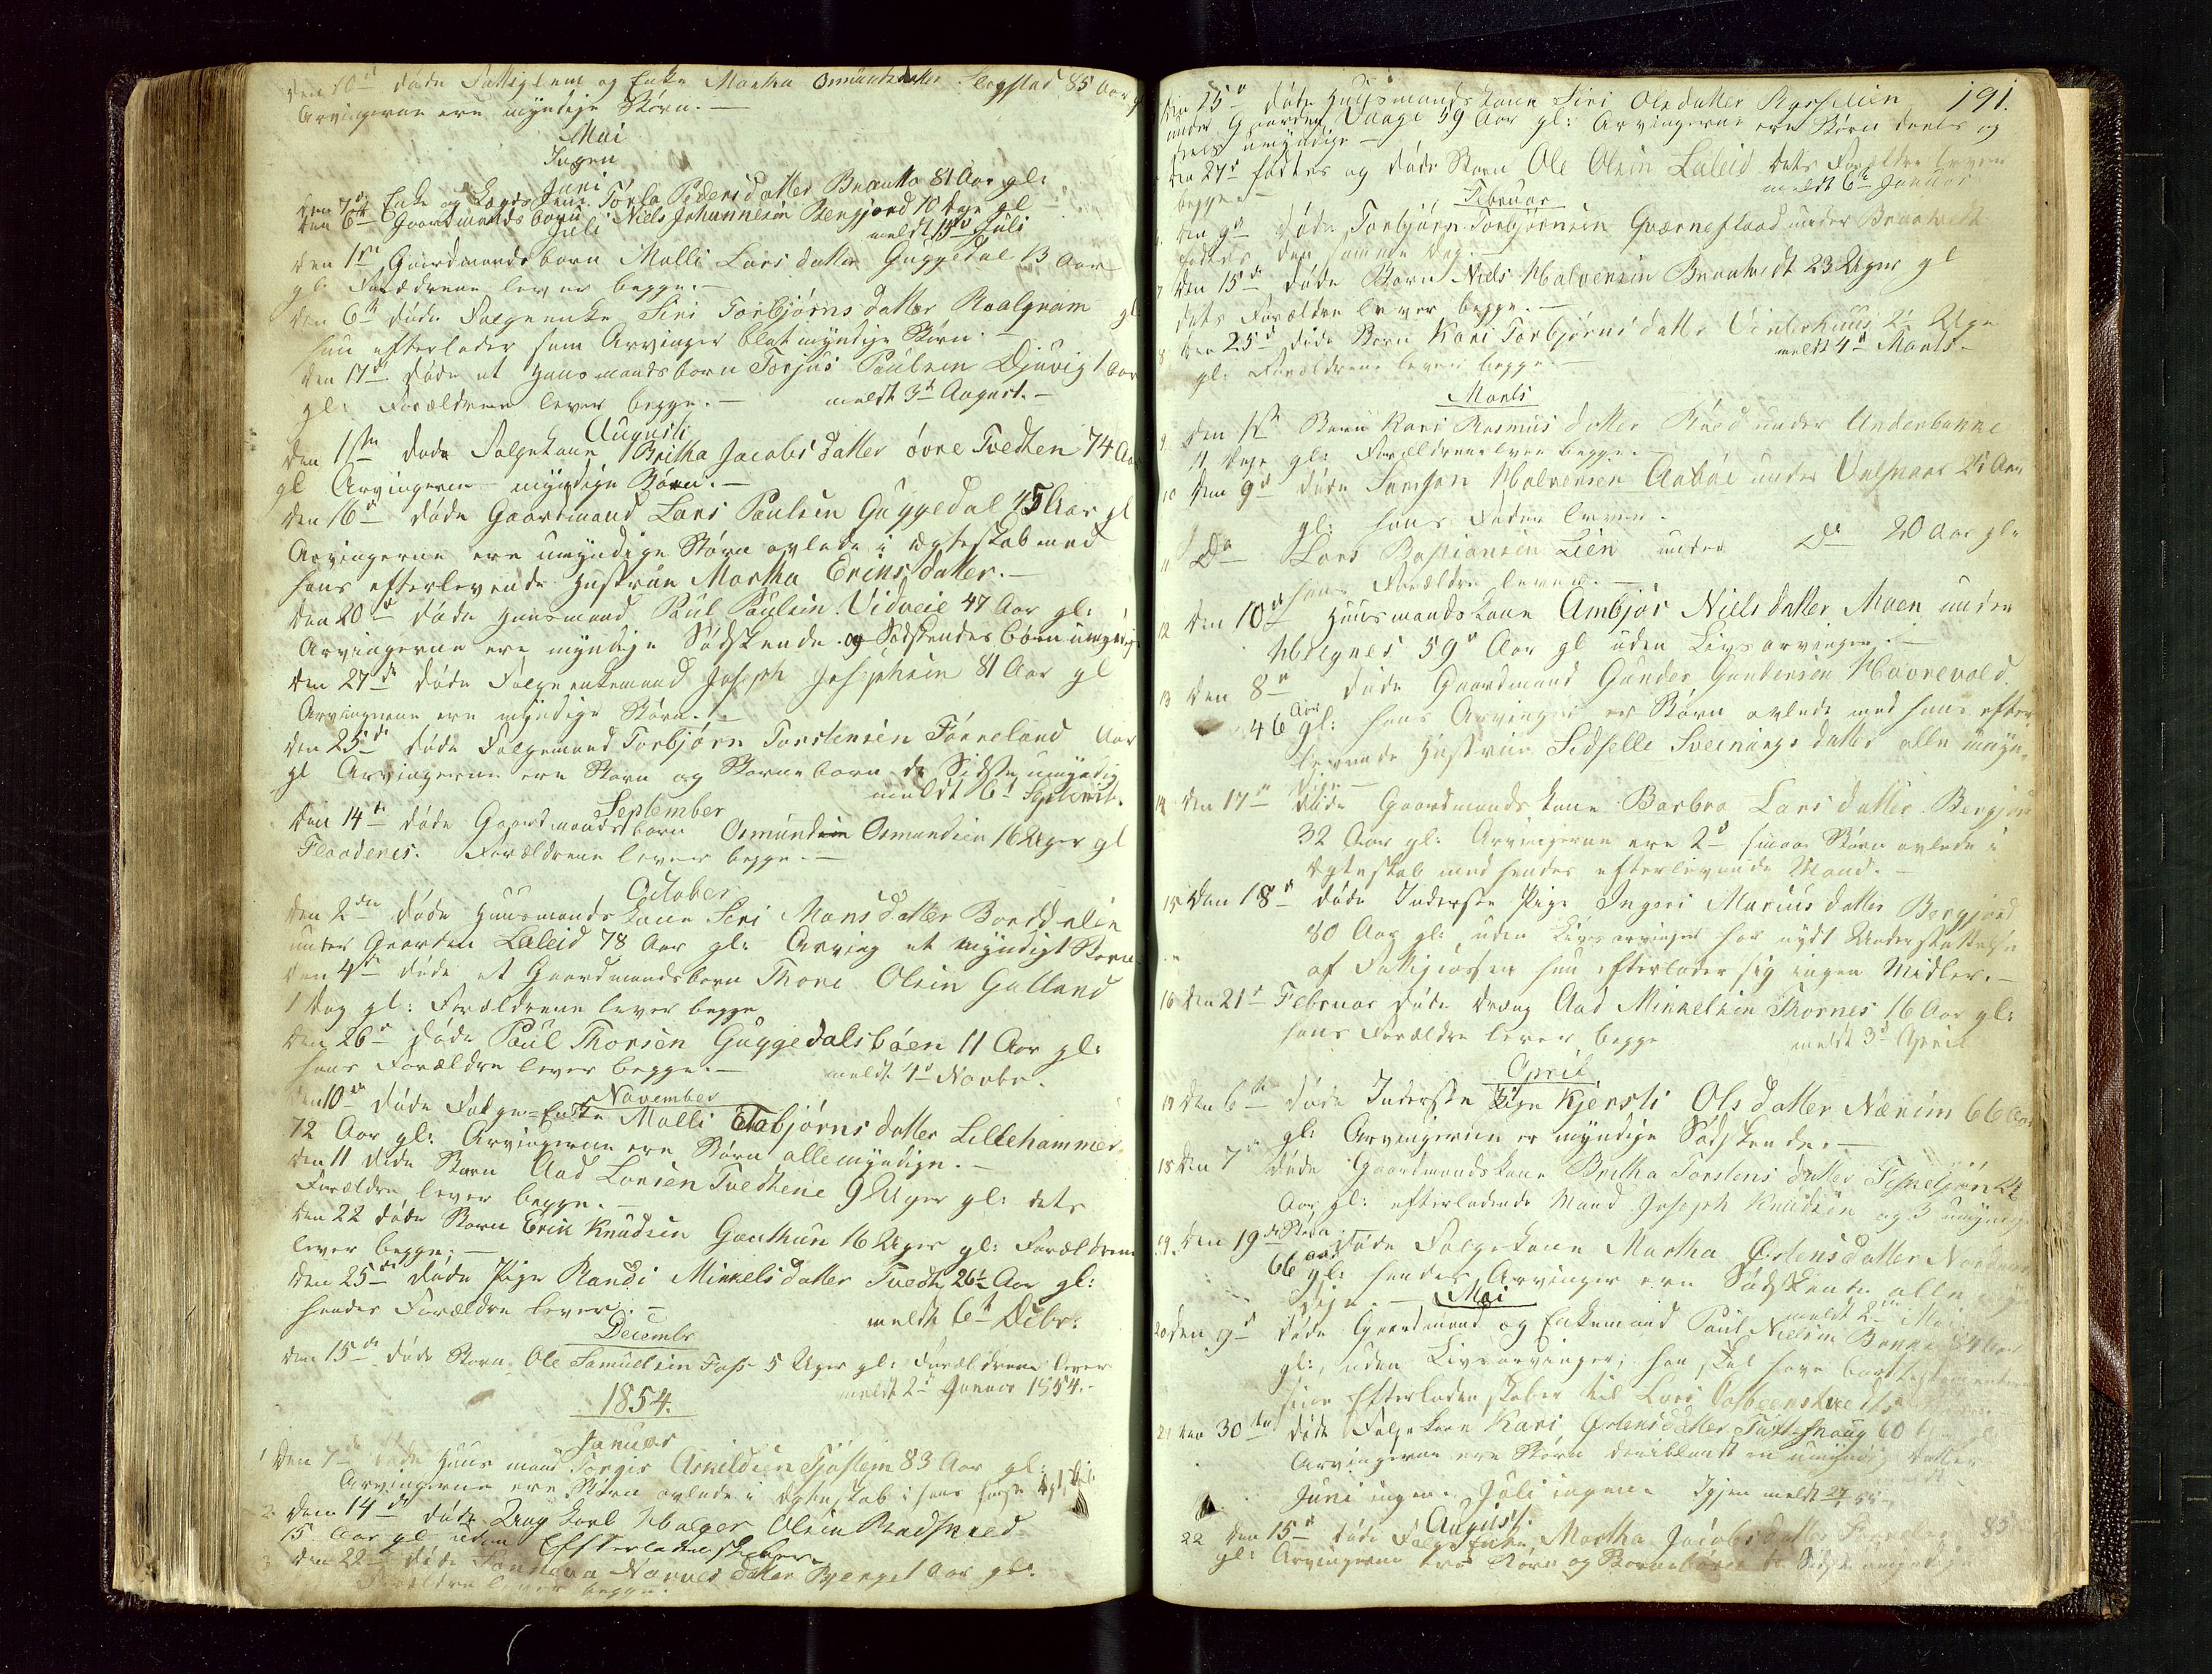 døde Fattiglem og Enke Martha Osmundsdatter Bogstad 85 Aar gl
Arvingerne ere myndige Børn. —
Mai
Ingen
Juni
Den 7de Enke og Lægdslem Torla Pedersdatter Braatte 81 Aar gl:
Den 6te Gaardmandsbarn Niels Johannesen Bergjord 10 Dage gl
Juli
meldt 1ste Juli
Den 1ste Gaardmandsbarn Malli Larsdatter Guggedal 13 Aar
gl: Forældrene lever begge. —
Den 6te døde Folgeenke Siri Torbjørnsdatter Roalqvam gl:
hun efterlader som Arvinger blot myndige Børn. —
Den 17de døde et Huusmandsbarn Torjus Paulsen Djuvig 1 Aar
gl: Forældrene lever begge. — meldt 3de August. —
Augusti
Den 1ste døde Folgekone Britha Jacobsdatter øvre Tvedten 74 Aar
gl Arvingerne myndige Børn. —
Den 16de døde Gaardmand Lars Paulsen Guggedal 45 Aar gl
Arvingerne ere umyndige Børn avlede i Ægteskab med
hans efterlevende Hustrue Martha Eriksdatter. —
Den 20de døde Huusmand Paul Paulsen Vidveie 47 Aar gl:
Arvingerne ere myndige Sødskende og Sødskendes børn umyndige
Den 27de døde Folgeenkemand Joseph Josephsen 81 Aar gl
Arvingerne ere myndige Børn. —
Den 25de døde Folgemand Torbjørn Torstensen Førreland Aar
gl Arvingerne ere Børn og Børnebørn de Sidste umyndig
meldt 6te Septembr.
September
Den 14de døde Gaardmandsbarn Osmund Osmundsen 16 Uger gl
Flaadenes. Forældrene lever begge. —
October
Den 2den døde Huusmandskone Siri Monsdatter Borddalie
under Gaarden Laleid 78 Aar gl: Arving et myndigt Barn.
Den 4de døde et Gaardmandsbarn Thore Olsen Galland
1 Dag gl: Forældrene lever begge
Den 26de døde Paul Thorsen Guggedalsbøen 11 Aar gl:
hans Forældre lever begge. — meldt 4de Novbr.
November
Den 10de døde Folge-Enke Malli Torbjørnsdatter Lillehammer
72 Aar gl: Arvingerne ere Børn alle myndige. —
Den 11 døde Barn Aad Larsen Tvedtene 9 Uger gl: dets
Forældre lever begge. —
Den 22 døde Barn Erik Knudsen Gauthun 16 Uger gl: Forældrene
lever begge; —
Den 25de døde Pige Randi Mikkelsdatter Tvedt 26½ Aar gl:
hendes Forældre lever. — meldt 6te Decbr:
Decembr
Den 15de døde Barn Ole Samuelsen Foss 5 Uger gl: Forældrene lever
meldt 2de Januar 1854. —
1854.
Januar
1 Den 7de døde Huusmand Torgir Askildsen 83 Aar gl:
Arvingerne ere Børn avlede i Ægteskab i hans første
2 Den 14de døde Ung Karl Holger Olsen
15 Aar gl uden Efterladenskaber
3 Den 22de døde datter 1 Aar gl:
Forældre lever begge.
191.
Den 25de døde Huusmandskone Siri Olsdatter
under Gaarden Vaage 59 Aar gl: Arvingerne ere Børn deels og
deels umyndige —
Den 27de fødtes og døde Barn Ole Olsen Laleid dets Forældre lever
begge meldt 6te Januar
Februar
Den 9de døde Torbjørn Torbjørnsen Qværneflaad under Braatvedt
fødtes den samme Dag. —
7 Den 15de døde Barn Niels Halvorsen Braatvedt 23 Uger gl
dets Forældre lever begge. —
8 Den 25de døde Barn Kari Torbjørnsdatter Vinterhuus 2½ Uge
gl: Forældrene lever begge. — meldt 4de Marts —
Marts
9 Den 1ste Barn Kari Rasmusdatter under Underbakke
11 Dage gl: Forældrene lever begge. —
10 Den 9de døde Samson Halvorsen Aabøe under 21 Aar
gl: hans Fader lever.
11 Do Lars Bastiansen Lien under Do 20 Aar gl:
hans Forældre lever. —
12 Den 10de Huusmandskone Ambjør Nielsdatter Moen under
Helgnes 59 Aar gl uden Livsarvinger. —
13 Den 8de døde Gaardmand Gunder Gundersen Haavrevold
46 Aar gl: hans Arvinger er Børn avlede med hans efter
levende Hustrue Sidselle Sveinungsdatter alle umyn-
dige —
14 Den 17de døde Gaardmandskone Barbro Larsdatter Bergjord
32 Aar gl: Arvingerne ere 2de smaae Børn avlede i
Ægteskab med hendes efterlevende Mand. —
15 Den 18de døde Inderste Pige Ingeri Mariusdatter Bergjord
80 Aar gl: uden Livsarvinger har nydt Understøttelse
af Fattigcassen hun efterlader sig ingen Midler. —
16 Den 21de Februar døde Dreng Aad Mikkelsen Thornes 16 Aar gl:
hans Forældre lever begge meldt 3de April
April
17 Den 6te døde Inderste Pige Kjersti Olsdatter Nærim 66 Aar
gl: Arvingerne er myndige Sødskende. —
18 Den 7de døde Gaardmandskone Britha Torstensdatter
Aar gl: efterladende Mand Joseph Knudsen og 3 umyndige
Børn
19 Den 19de døde Folgekone Martha Østensdatter
66 Aar gl: hendes Arvinger ere Sødskende alle
dige. — meldt 2den Mai
Mai
20 Den 9de døde Gaardmand og Enkemand Paul Nielsen Bakke 84 Aar
gl: uden Livsarvinger; han skal have borttestamenteret
sine Efterladenskaber til Lars
21 Den 30te døde Folgekone Kari Østensdatter 60
Arvingerne ere Børn deriblandt en umyndig Datter
Juni ingen. Juli ingen Igjen meldt
August.
22 Den 15de døde Folgeenke Martha Jacobsdatter 85
gl: Arvingerne Børn og Børnebørn de Sidste umyndige